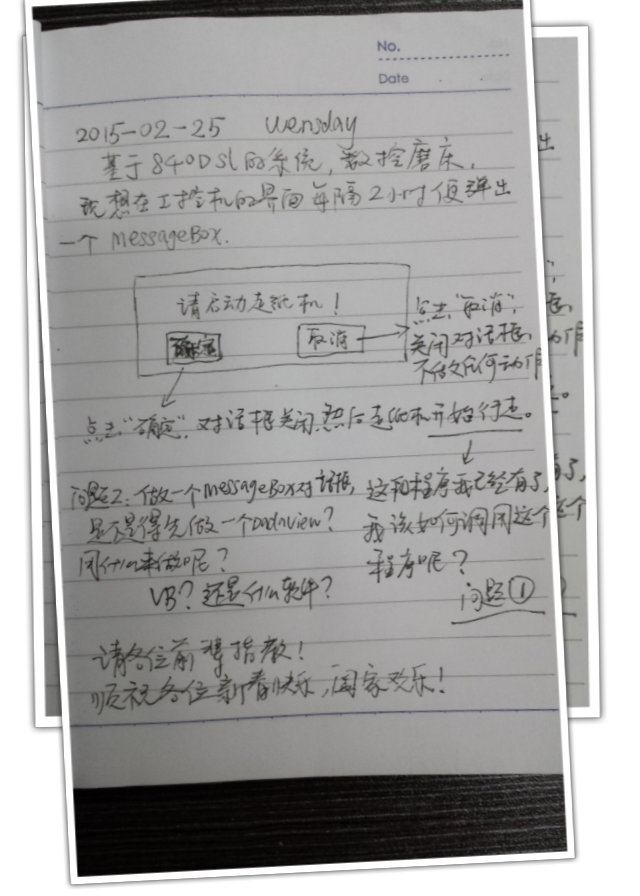 No.
Date
2015-02-25 Wensday
基于840Dsl的系统，数控磨床，
现想在工控机的界面每隔2小时便弹出
一个 MessageBox.
请启动走纸机！
确定
取消
点击"取消"，
关闭对话框，
不做任何动作
点击"确定"，对话框关闭，然后走纸机开始行走。
问题2：做一个MessageBox对话框，
是不是得先做一个Dataview？
用什么来做呢？
VB？还是什么软件？
这种程序我已经有了，
我该如何调用这个
程序呢？
问题①
请各位前辈指教！
顺祝各位新春快乐，阖家欢乐！